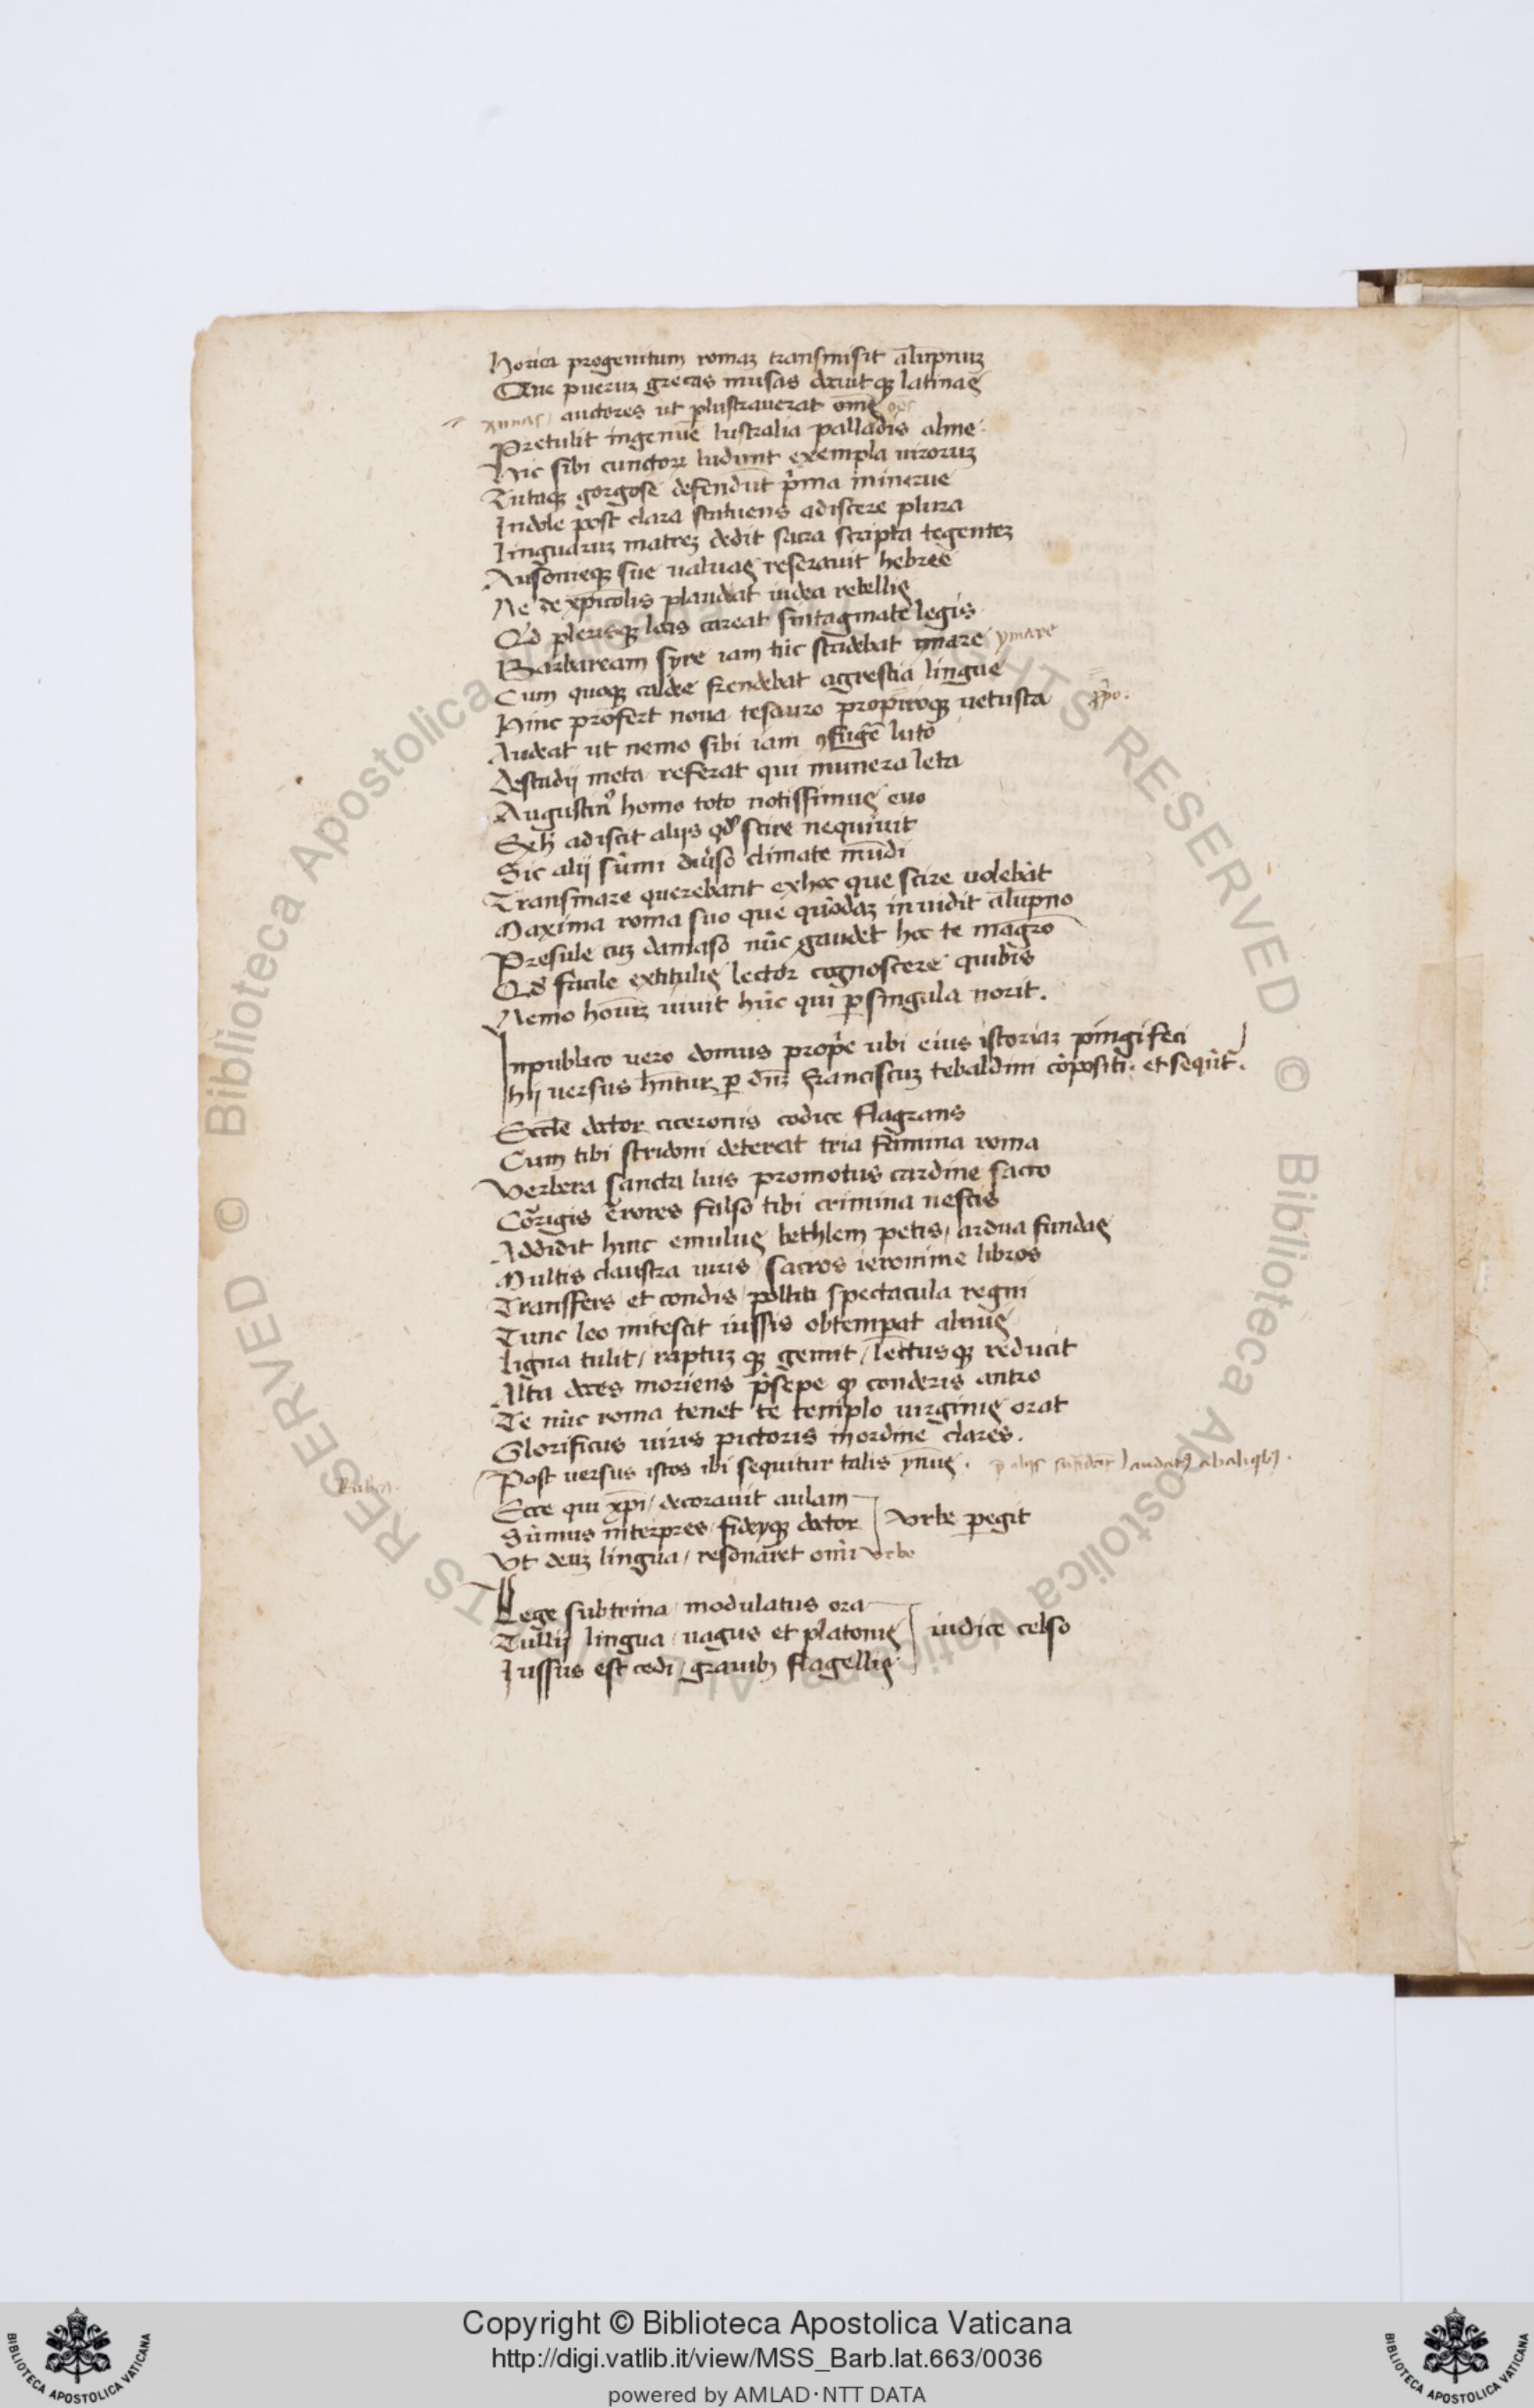 Norica progenitum romaz transmisit alūpnuz
Que pueruz grecas musas docuitqz latinas
auctores ut plustrauerat om̄es
Pretulit ingenue lustralia palladis alme
Hic sibi cunctorz ludunt exempla uiroruz
Tutaqz gorgose defendūt p̄ma minerue
Indole post clara statuens adiscere plura
Linguaruz matrez dedit sacra scripta tegentez
Ausonieqz sue ualuas reserauit hebree
Ne de xp̄icolis plaudat iudea rebellis
Qd̄ plerisqz locis careat sintagmate legis
Barbaream syre iam hic studebat ymare ymare
Cum quoqz caldee frendebat agrestia lingue
Hinc profert noua tesauro propitioqz uetusta
Audeat ut nemo sibi iam ꝯfligē luto
De stadij meta referat qui munera leta
Augustin9 homo toto notissimus euo
adiscit alijs qd̄ scire nequiuit
Sic alij sūmi diūso climate mūdi
Transmare querebant exhoc que scire uolebāt
Maxima roma suo que quōdaz inuidit alūpno
Presule cuz damaso nūc gaudet hoc te magrō
Qd̄ facile extitulis lector cognoscere quibis
Nemo houz uiuit hūc qui psingula norit.
Inpublico uero domus prope ubi eius istoriaz pingi feci
hij versus hn̄tur p dn̄z Franciscuz tebaldini cōpositi. et seqūt.
Eccłe doctor ciceronis codice flagrans
Cum tibi stridoni detereat tria famina roma
Verbera sancta luis promotus cardine sacro
Corrigis errores falso tibi crimina uestis
Addidit hinc emulus bethlem petis, ardua fundas
Multis claustra uiris sacros ieronime libros
Transffers et condis polliti spectacula regni
Tunc leo mitescit iussis obtemperat almus
ligna tulit, raptuz qz gemit, lectusqz reducit
Alta doces moriens p̄sepe qz conderis antro
Te nūc roma tenet te templo uirginis orat
Glorificus uiris pictoris inordine clares.
Post uersus istos ibi sequitur talis ynnus.
Ecce qui xp̄i, decorauit aulam
Sūmus interpres fideiqz doctor Vrbe pegit
Vt deuz lingua, resonaret omi Vrbe
Lege subtrina modulatus ora
Tullij lingua, uagus et platonis iudice celso
Iussus est cedi, grauibz flagellis
Copyright © Biblioteca Apostolica Vaticana
http://digi.vatlib.it/view/MSS_Barb.lat.663/0036
powered by AMLAD·NTT DATA